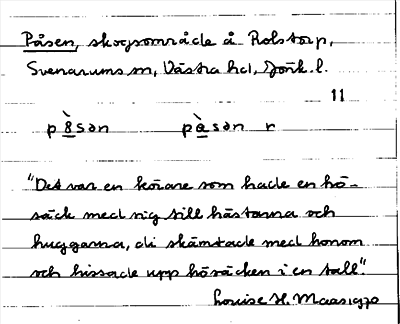 Påsen, skogsområde å Rolstorp,
Svenarums sn, Västra hd, Jönk. l.
11
pàsən r
"Det var en körare som hade en hö-
säck med sig till hästarna och
huggarna, di skämtade med honom
och hissade upp hösäcken i en tall."
Louise H. Maas 1970